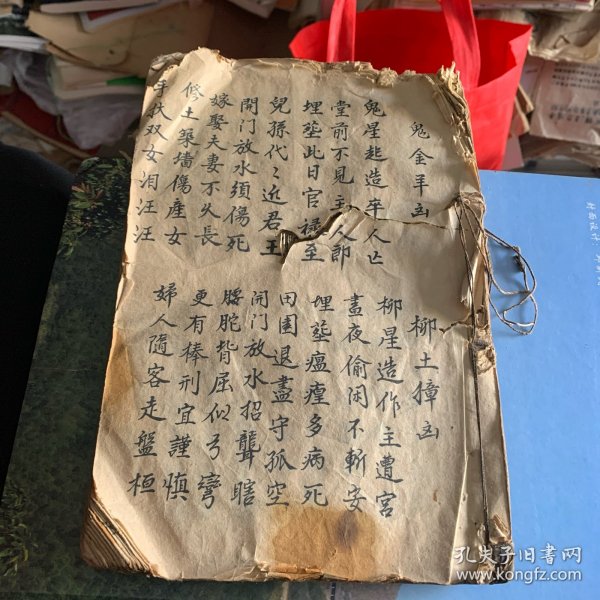 鬼金羊凶
鬼星起造卒人亡
堂前不見主人郎
埋塟此日官祿至
兒孫代〻近君王
開门放水須傷死
嫁娶夫妻不久長
修土築墻傷産女
手扶双女泪汪汪
柳土獐凶
柳星造作主遭官
晝夜偷闲不暫安
埋塟瘟㾮多病死
田園退盡守孤空
開门放水招聾瞎
腰駝背屈似弓彎
更有棒刑宜謹慎
婦人隨客走盤桓
孔夫子旧書网
www.kongfz.com
封面设计: